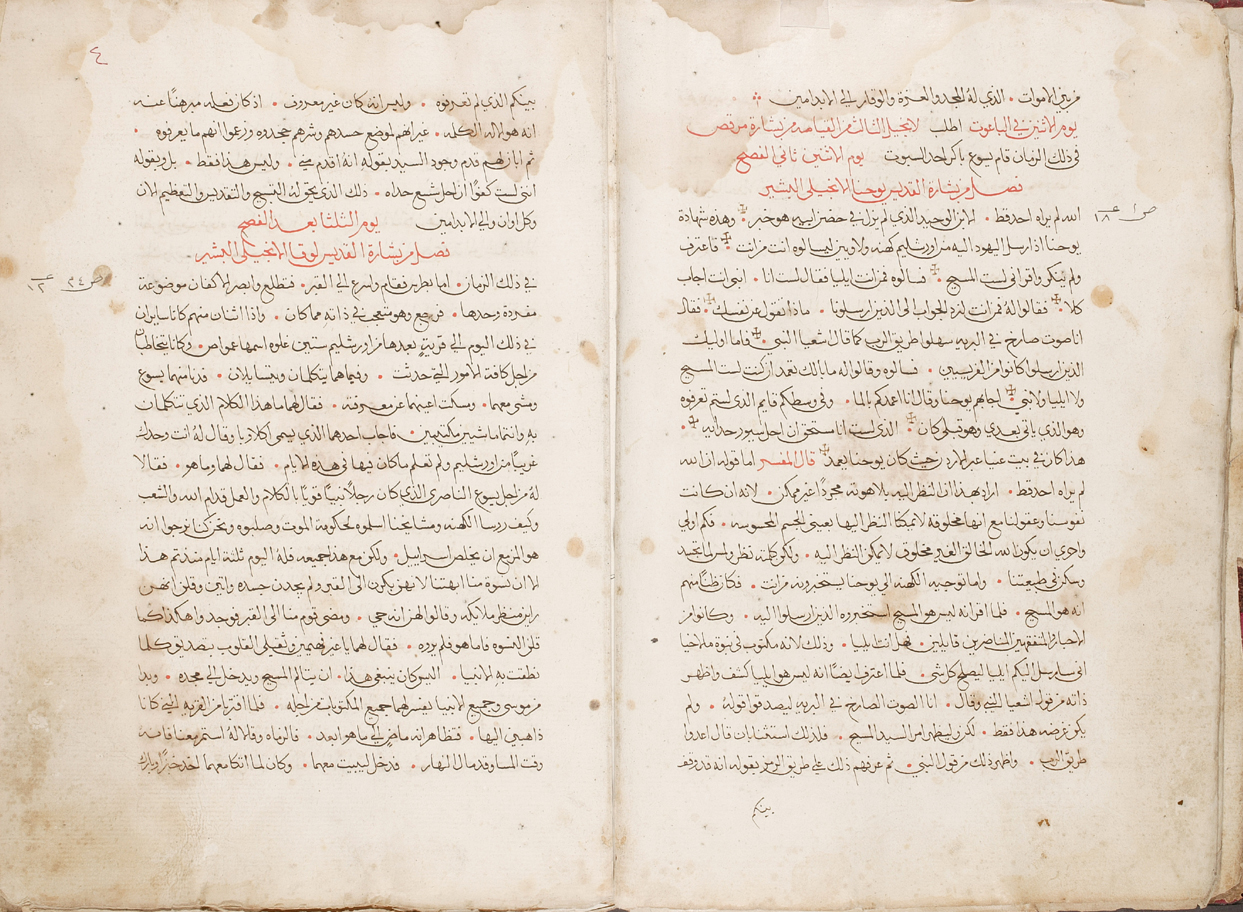 من بين الاموات • الذي له المجد والعزة والوقار الي الابد امين
يوم الاثنين في الباعوت اطلب لانجيل الثالث من القيامه من بشارة مرقص
في ذلك الزمان قام يسوع باكر احد السبوت يوم الاثنين ثاني الفصح
فصل من بشارة القديس يوحنا الانجيلي البشير
الله لم يراه احد قط • الابن الوحيد الذي لم يزل في حضن ابيه هو خبر • وهذه شهادة
يوحنا اذ ارسل اليهود اليه من اورشليم كهنه ولاويين ليسالوه انت من انت • فاعترف
ولم ينكر واقر اني لست المسيح • فسالوه فمن انت ايليا فقال لست انا • انبي انت اجاب
كلا • فقالوا له فمن انت لنرد الجواب الى الذين ارسلونا • ماذا تقول عن نفسك • فقال
انا صوت صارخ في البريه سهلوا طريق الرب كما قال شعيا النبي • فاما اوليك
الذين ارسلوا كانوا من الفريسيين • فسالوه وقالوا له ما بالك تعمد ان كنت لست المسيح
ولا ايليا ولا نبي • اجابهم يوحنا وقال انا اعمدكم بالما • وفي وسطكم قايم الذي لستم تعرفوه
وهو الذي ياتي بعدي وهو قبلي كان • الذي لست انا مستحق ان احل سيور حدايه •
هذا كان في بيت عنيا عبر الاردن حيث كان يوحنا يعمد • قال المفسر اما قوله ان الله
لم يراه احد قط • اراد بهذا ان النظر اليه بلاهوته مجردًا غير ممكن • لانه ان كانت
نفوسنا وعقولنا مع انها مخلوقة لا تمكنا النظر اليها بعيني الجسم المحسوسه • فكم اولي
واحري ان يكون الله الخالق الغير مخلوق لا يمكن النظر اليه • ولكن كلمته نظر ولمس لما تجسد
وسكن في طبيعتنا • واما توجيه الكهنه الى يوحنا يستخبرونه من انت • فكان ظنًا منهم
انه هو المسيح • فلما اقر انه ليس هو المسيح استخبروه الذين ارسلوا اليه • وكانوا من
الاحبار المتفقهين الناصرين قايلين • فهل انت ايليا • وذلك لانه مكتوب في نبوة ملاخيا
اني سارسل اليكم ايليا ليصلح كل شي • فلما اعترف ايضًا انه ليس هو ايليا كشف واظهر
ذاته من قول اشعيا النبي وقال • انا الصوت الصارخ في البريه ليصدقوا قوله • ولم
يكن غرضه هذا فقط • لكن وليظهر امر السيد المسيح • فلذلك استثنا بان قال اعدوا
طريق الرب • واظهر ذلك من قول النبي • ثم عرفهم ذلك على طريق الرمز بقوله انه قد وقف
بينكم
ص ١ عـ ١٨
٤
بينكم الذي لم تعرفوه • وليس انه كان غير معروف • اذ كان فعله مبرهنًا عنه
انه هو الاله الكلمه • غير انهم لموضع حسدهم وشرهم جحدوه وزعموا انهم ما يعرفوه •
ثم ابان لهم قدم وجود السيد بقوله انه اقدم مني • وليس هذا فقط • بل وبقوله
انني لست كفوًا ان احل شسع حداه • ذلك الذي يحق له التسبيح والتقديس والتعظيم الان
وكل اوان والي الابد امين يوم الثلثا بعد الفصح
فصل من بشارة القديس لوقا الانجيلي البشير
في ذلك الزمان • اما بطرس فقام واسرع الي القبر • فتطلع وابصر الاكفان موضوعة
مفردة وحدها • فرجع وهو متعجب في ذاته مما كان • واذا اثنان منهم كانا سايران
في ذلك اليوم الي قرية بعدها من اورشليم ستين غلوه اسمها عمواص • وكانا يتخاطبان
من اجل كافة الامور التي حدثت • وفيما هما يتكلمان ويتسايلان • فدنا منهما يسوع
ومشى معهما • ومسكت اعينهما عن معرفته • فقال لهما ما هذا الكلام الذي تتكلمان
به وانتما ماشيين مكتيبين • فاجاب احدهما الذي يسمى اكلاوبا وقال له انت وحدك
غريبًا من اورشليم ولم تعلم ما كان فيها في هذه الايام • فقال لهما وما هو • فقالا
له من اجل يسوع الناصري الذي كان رجلًا نبيًا قويًا بالكلام والعمل قدام الله والشعب
وكيف روسا الكهنه ومشايخنا اسلموه لحكومة الموت وصلبوه ونحن كنا نرجوا انه
هو المزمع ان يخلص اسراييل • ولكن مع هذا جميعه فله اليوم ثلثة ايام منذ تم هذا
الا ان نسوة منا ابهتنا لانهن بكون الى القبر ولم يجدن جسده واتين وقلن انهن
راين منظر ملايكه وقالوا لهن انه حي • ومضى قوم منا الى القبر فوجدوا هاكذا كما
قلن النسوه فاما هو فلم يروه • فقال لهما يا غير فهيمين وثقيلي القلوب بتصديق كلما
نطقت به الانبيا • اليس كان ينبغي هذا • ان يتالم المسيح ويدخل الي مجده • وبدا
من موسى وجميع الانبيا يفسر لهما جميع المكتوبات من اجله • فلما اقتربا من القريه التي كانا
ذاهبين اليها • فتظاهر انه ماضٍ الي ما هو ابعد • فالزماه وقالا له استمر معنا فانه
وقت المسا وقد مال النهار • فدخل ليبيت معهما • وكان لما اتكا معهما اخذ خبزًا وبارك
ص ٢٤ عـ ١٢